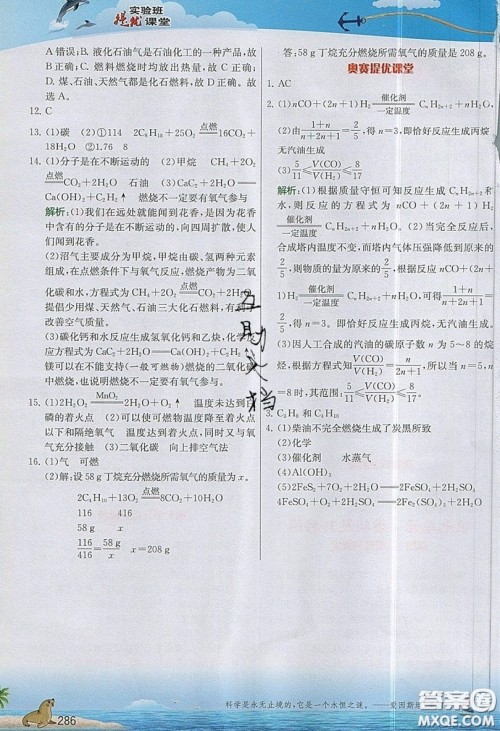 实验班
提优课堂
A 错误;B. 液化石油气是石油化工的一种产品,故
B 正确;C. 燃料燃烧时均放出热量,故 C 正确;
D. 煤、石油、天然气都是化石燃料,故 D 正确。故
选 A。
12. C
13. (1)碳 (2)①114 2C₈H₁₈+25O₂ 点燃 16CO₂
+18H₂O ②1.76 8
14. (1)分子是在不断运动的 (2)甲烷 CH₄+2O₂
点燃 CO₂+2H₂O 石油 (3)CaC₂+2H₂O
Ca(OH)₂+C₂H₂↑ 燃烧不一定要有氧气参与
解析:(1)我们在远处就能闻到花香,是因为花香
中含有的分子在不断的运动,向四周扩散,使人
们闻到花香。
(2)沼气主要成分为甲烷,甲烷由碳、氢两种元素
组成,在点燃条件下与氧气反应,燃烧产物为二氧
化碳和水,方程式为 CH₄+2O₂ 点燃 CO₂+2H₂O
提倡少用煤、天然气、石油三大化石燃料,有利于
改善空气质量。
(3)碳化钙和水反应生成氢氧化钙和乙炔,化学反
应方程式为 CaC₂+2H₂O══Ca(OH)₂+C₂H₂↑
镁可以在不能支持(一般可燃物)燃烧的二氧化碳
中燃烧,说明燃烧不一定要有氧气参与。
15. (1)2H₂O₂ MnO₂ 2H₂O+O₂↑ 温度未达到白
磷的着火点 (2)可以使可燃物温度降至着火点
以下和隔绝氧气 温度达到着火点,同时与氧
气充分接触 (3)二氧化碳 向上排空气法
16. (1)气 可燃
(2)解:设 58 g 丁烷充分燃烧所需氧气的质量为 x。
2C₄H₁₀+13O₂ 点燃 8CO₂+10H₂O
116 416
58 g x
116/416=58 g/x x=208 g
答:58 g 丁烷充分燃烧所需氧气的质量是 208 g。
奥赛提优课堂
1. AC
2. (1)(2n+1)H₂+nCO 催化剂/一定温度 CₙH₂ₙ₊₂+nH₂O
(2)由 1/(n+2n+1)=2/11,得 n=3,即恰好反应生成丙烷,
无汽油生成
(3)5/11≤V(CO)/V(H₂)≤8/17
解析:(1)根据质量守恒可知反应生成 CₙH₂ₙ₊₂和
水,则反应的方程式为 nCO+(2n+1)H₂
催化剂/一定温度 CₙH₂ₙ₊₂+nH₂O。(2)完全反应后,
合成塔内温度不变,而塔内气体压强降低到原来的
2/n,则物质的量为原来的,由方程式 nCO+(2n+
1)H₂ 催化剂/一定温度 CₙH₂ₙ₊₂+nH₂O 可知
得 n=3,即恰好反应生成丙烷,无汽油生成。
(3)因人工合成的汽油的碳原子数为 5~8 的烷
烃,
5/11≤V(CO)/V(H₂)≤8/17。
3. C₃H₈和 C₄H₈
4. (1)柴油不完全燃烧生成了炭黑所致
(2)化学
(3)催化剂 水蒸气
(4)D
(5)2FeS₂+7O₂+2H₂O══2FeSO₄+2H₂SO₄
4FeSO₄+O₂+2H₂O══4Fe(OH)SO₄
五三刷头挡
286
科学是永无止境的,它是一个永恒之谜。——爱因斯坦
答案圈
MXQE.COM